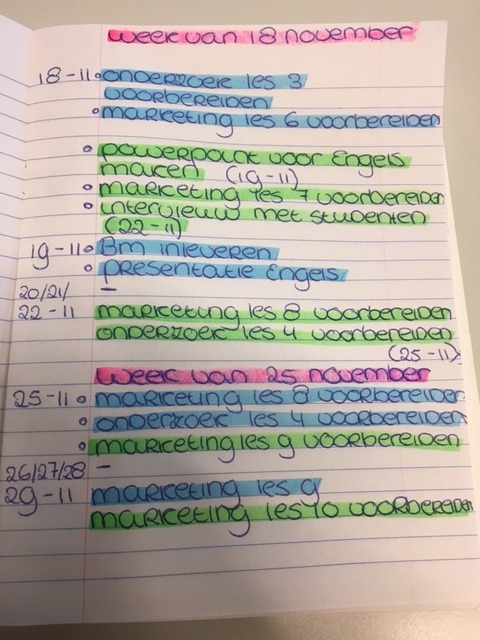 week van 18 november
18-11 • onderzoek les 3
voorbereiden
• marketing les 6 voorbereiden
• powerpoint voor Engels
maken (19-11)
• marketing les 7 voorbereiden
• interview met studenten
(22-11)
19-11 • BM inleveren
• presentatie Engels
20/21/ –
22-11 marketing les 8 voorbereiden
onderzoek les 4 voorbereiden
(25-11)
week van 25 november
25-11 • marketing les 8 voorbereiden
• onderzoek les 4 voorbereiden
• marketing les 9 voorbereiden
26/27/28 –
29-11 marketing les 9
marketing les 10 voorbereiden